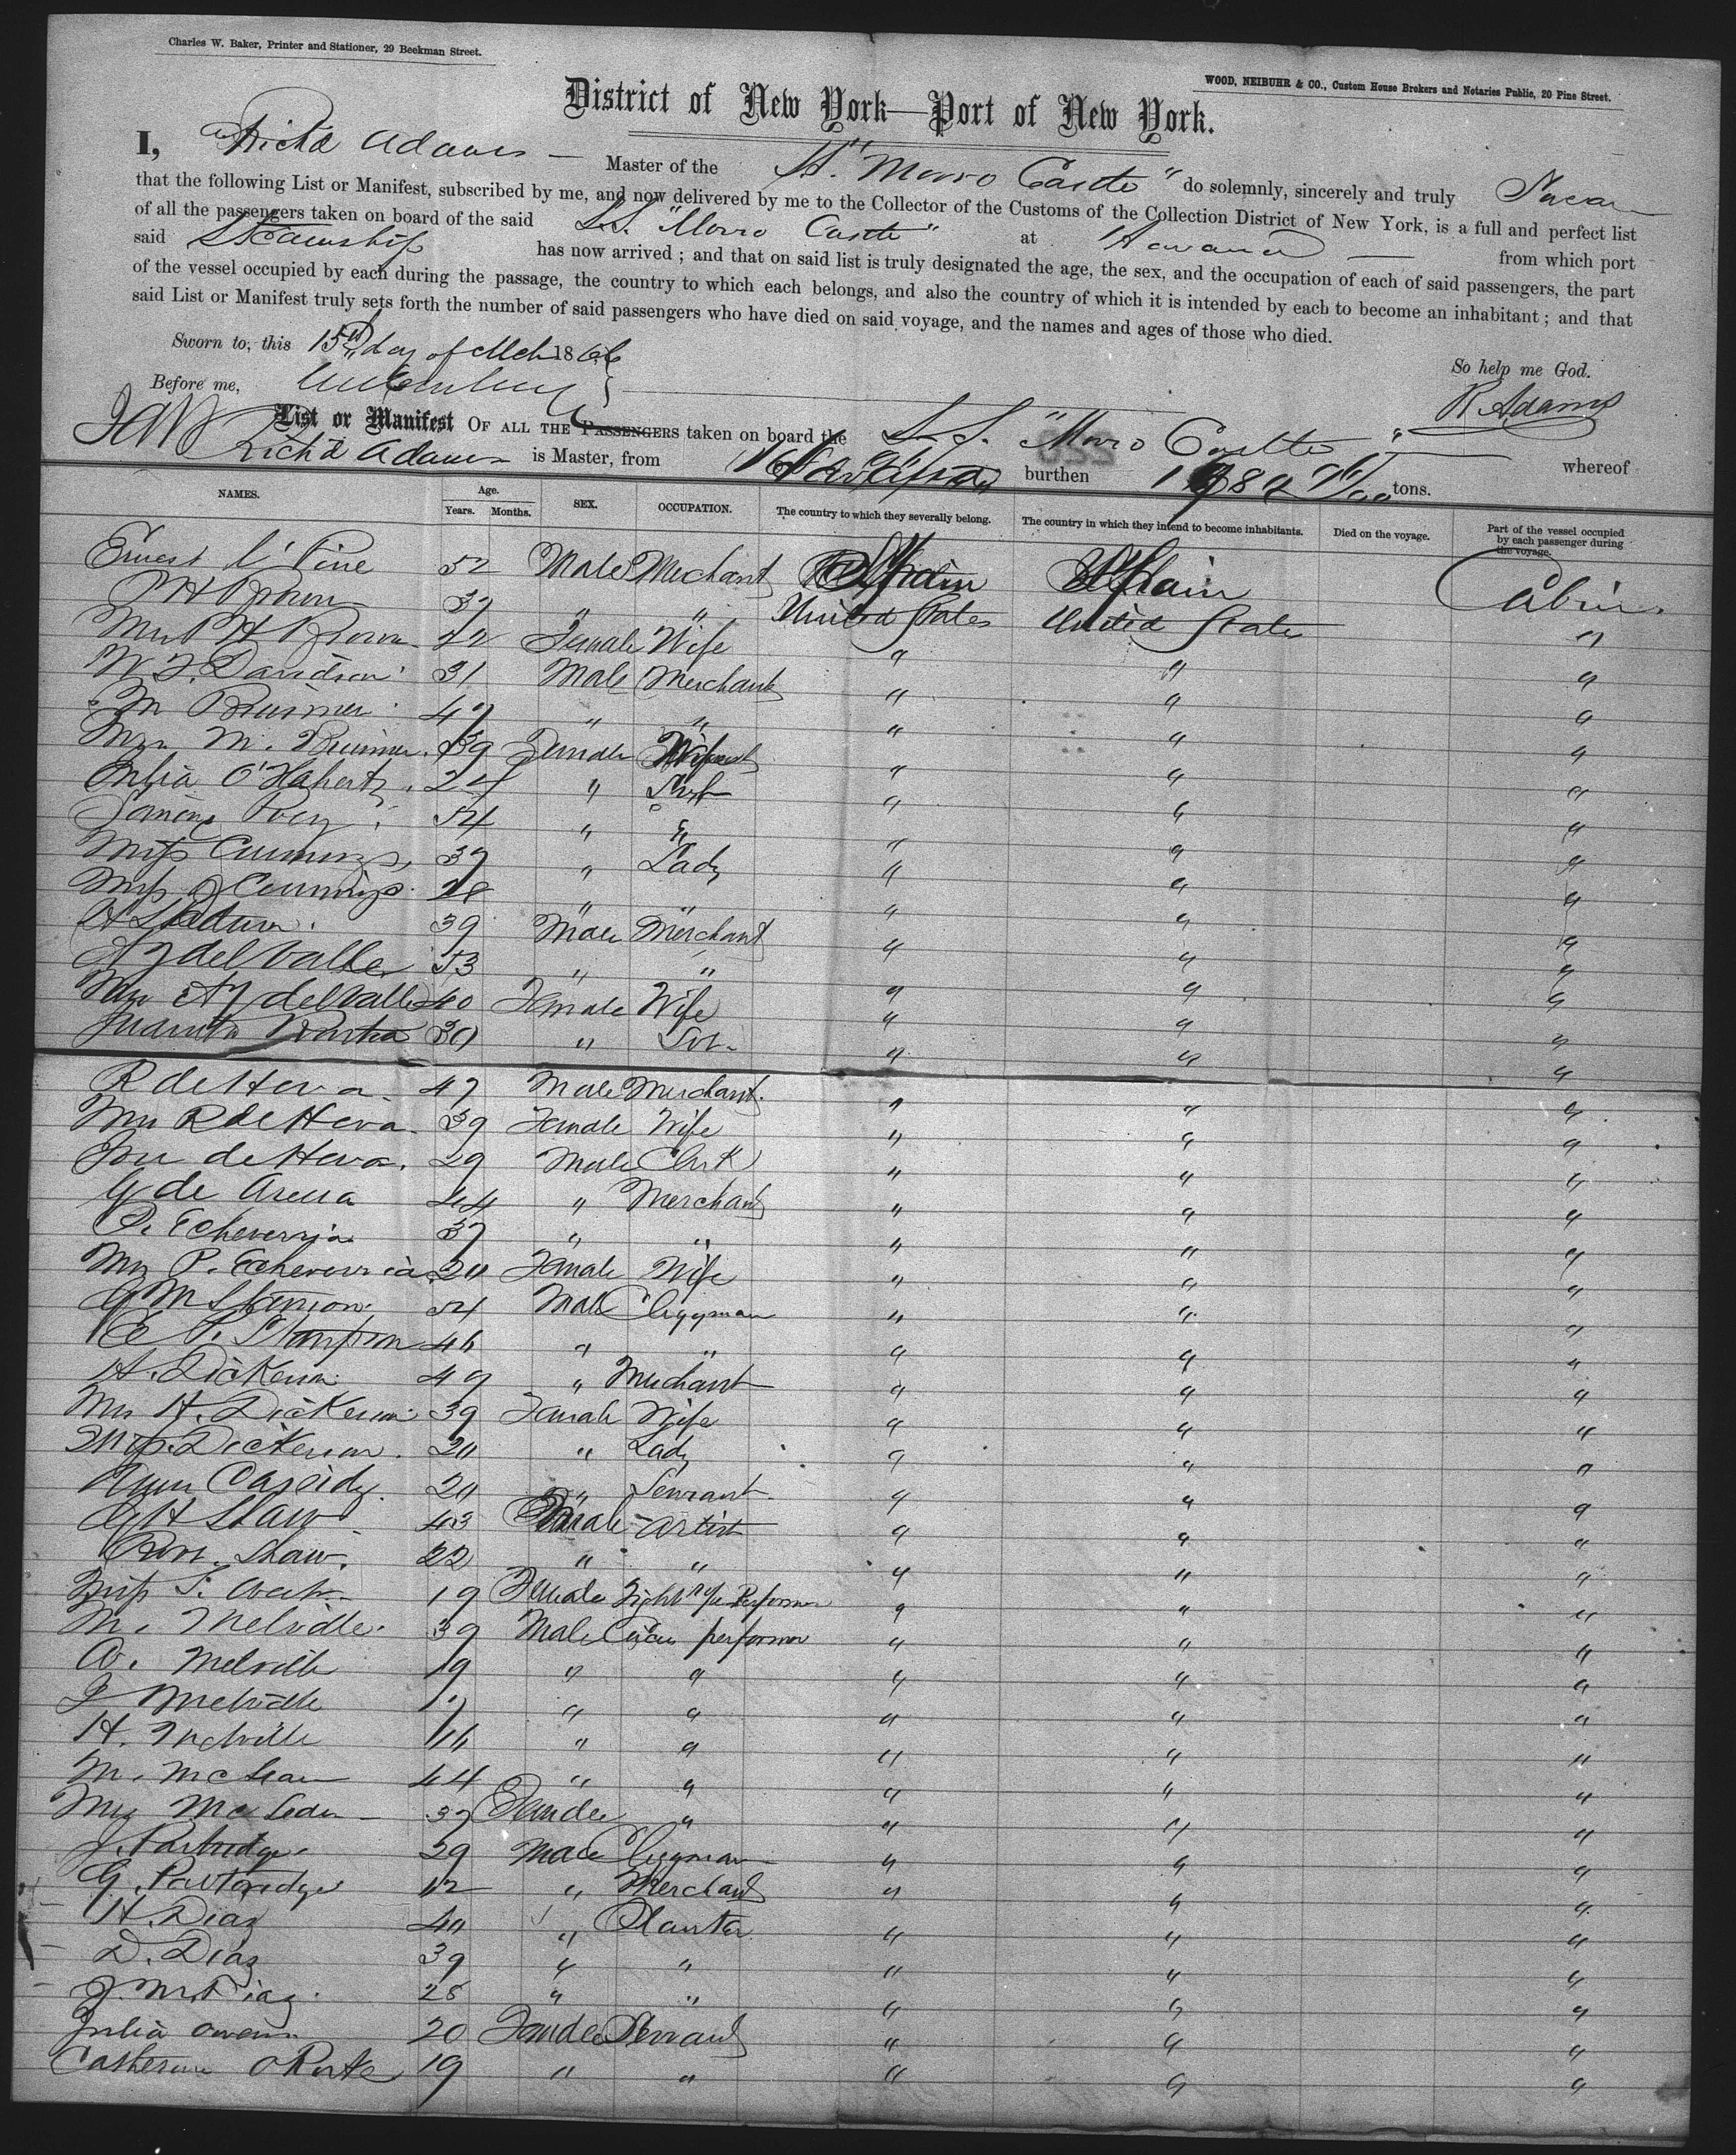 Charles W. Baker, Printer and Stationer, 29 Beekman Street.
WOOD, NEIBUHR & CO., Custom House Brokers and Notaries Public, 20 Pine Street.
District of New York—Port of New York.
I, Rich'd Adams — Master of the "Morro Castle" do solemnly, sincerely and truly Swear
that the following List or Manifest, subscribed by me, and now delivered by me to the Collector of the Customs of the Collection District of New York, is a full and perfect list
of all the passengers taken on board of the said S.S. "Morro Castle" at Havana — from which port
said Steamship has now arrived ; and that on said list is truly designated the age, the sex, and the occupation of each of said passengers, the part
of the vessel occupied by each during the passage, the country to which each belongs, and also the country of which it is intended by each to become an inhabitant ; and that
said List or Manifest truly sets forth the number of said passengers who have died on said voyage, and the names and ages of those who died.
Sworn to, this 15th day of Mch 1866
So help me God.
Before me,
R Adams
List or Manifest OF ALL THE PASSENGERS taken on board the S.S. "Morro Castle" whereof
Rich'd Adams is Master, from burthen tons.
NAMES. Age. Years. Months. SEX. OCCUPATION. The country to which they severally belong. The country in which they intend to become inhabitants. Died on the voyage. Part of the vessel occupied by each passenger during the voyage.
Ernest 52 Male Merchant Spain Spain Cabin
P H Brown 37 " " United States United States "
Mrs P H Brown 42 Female Wife " " "
W. J. Davidson 31 Male Merchant " " "
M Brunner 47 " " " " "
Mrs M. Brunner 39 Female Wife " " "
Julia O'Flaherty 24 " " " "
54 " " " " "
Miss Cummings 37 " Lady " " "
Miss J Cummings 28 " " " " "
39 Male Merchant " " "
A J del Valle 53 " " " " "
Mrs A J del Valle 40 Female Wife " " "
Juanita 30 " " " "
R de Hera 47 Male Merchant " " "
Mrs R de Hera 39 Female Wife " " "
de Hera 29 Male Clerk " " "
G de Arena 44 " Merchant " " "
P. Echeverria 37 " " " " "
Mrs P. Echeverria 20 Female Wife " " "
G M 54 Male Clergyman " " "
E P. Thompson 46 " " " " "
H. Dickerson 49 " Merchant " " "
Mrs H. Dickerson 39 Female Wife " " "
Miss Dickerson 20 " Lady " " "
Ann Cassidy 20 " Servant " " "
G H Shaw 43 Male Artist " " "
Shaw 22 " " " " "
Miss S. 19 Female Tight rope Performer " " "
M. Melville 39 Male Circus performer " " "
A. Melville 19 " " " " "
J Melville 17 " " " " "
H. Melville 16 " " " " "
M. 44 " " " " "
Mrs 37 Female " " " "
J. Partridge 29 Male Clergyman " " "
G. Partridge 42 " Merchant " " "
H. Diaz 40 " Planter " " "
D. Diaz 39 " " " " "
J. M. Diaz 28 " " " " "
Julia Owens 20 Female Servant " " "
Catherine O'Rorke 19 " " " " "